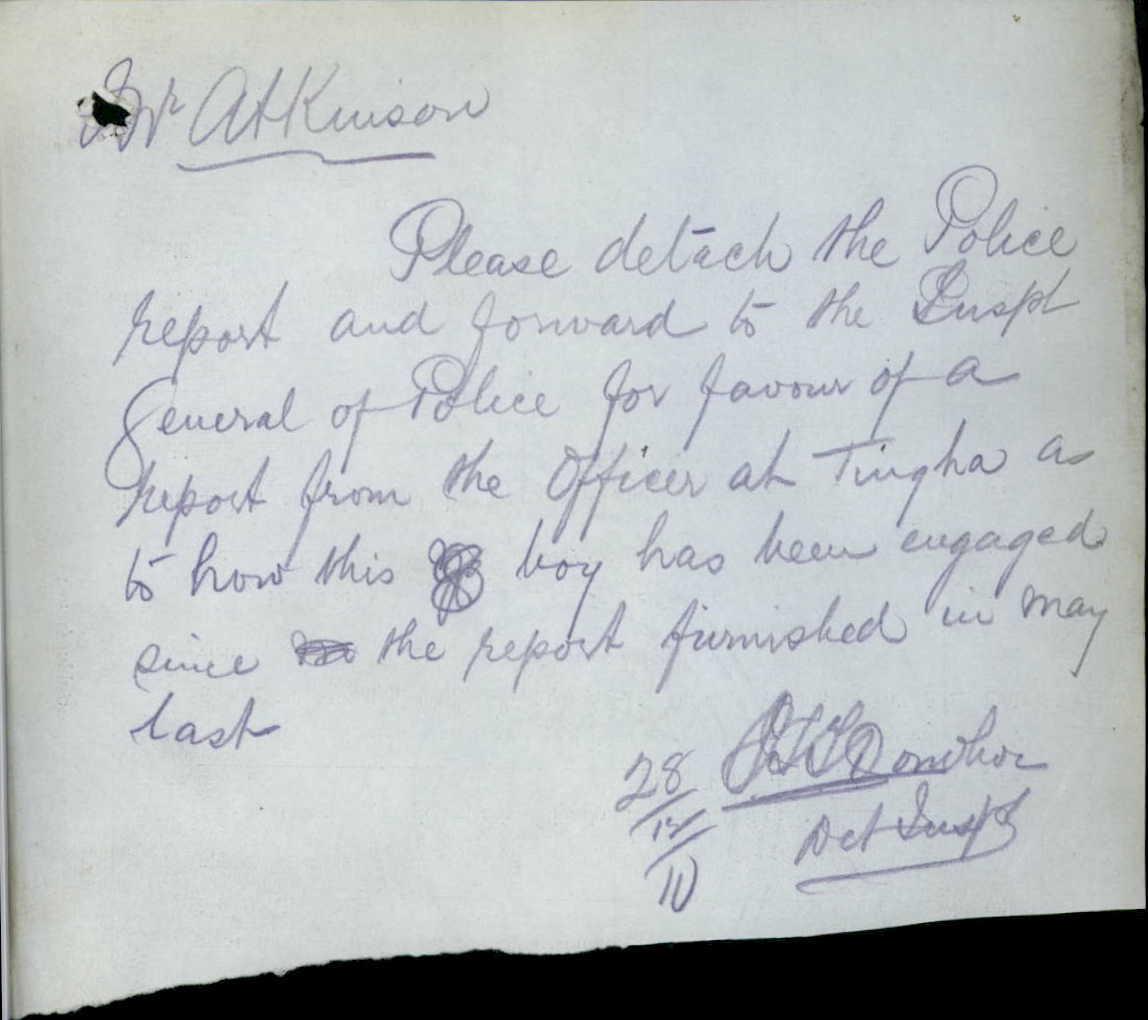 Mr Atkinson
Please detach the Police
report and forward to the Inspt
General of Police for favour of a
report from the Officer at Tingha as
to how this boy has been engaged
since the report furnished in May
last
28
12
10
Det Inspt